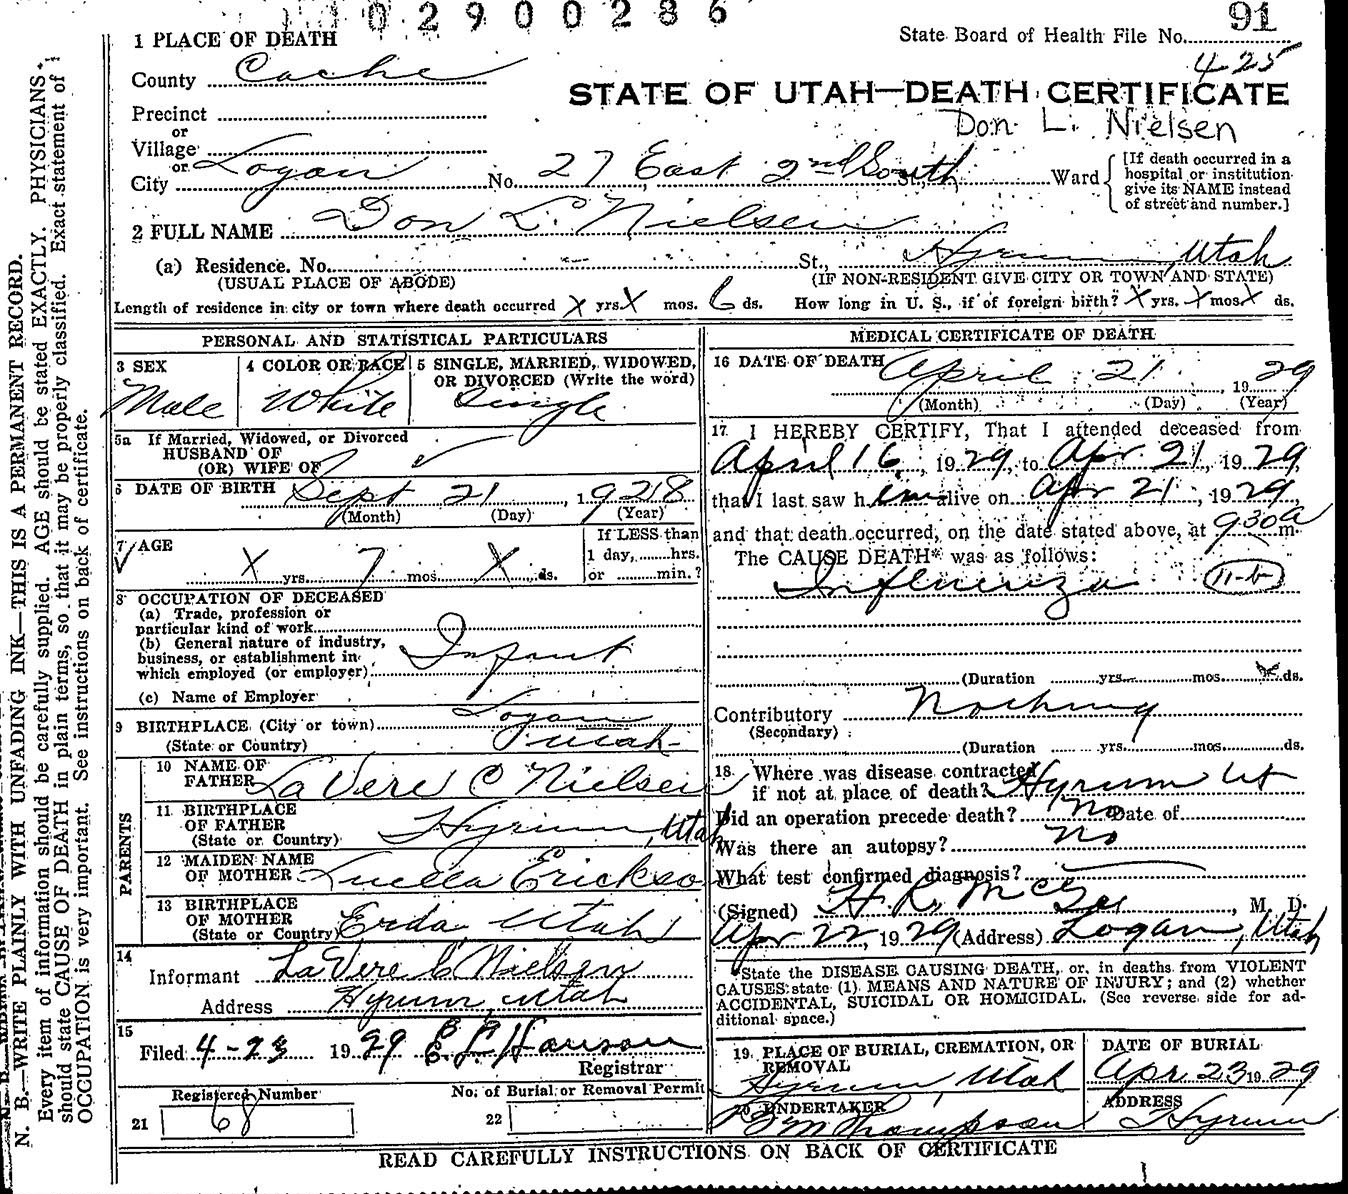 02900286
91
1 PLACE OF DEATH
State Board of Health File No.
425
County Cache
STATE OF UTAH—DEATH CERTIFICATE
Precinct
Don L. Nielsen
or
Village
or
City Logan No. 27 East 2nd South St., Ward
[If death occurred in a hospital or institution give its NAME instead of street and number.]
2 FULL NAME Don L. Nielsen
(a) Residence. No. St., Hyrum, Utah
(USUAL PLACE OF ABODE) (IF NON-RESIDENT GIVE CITY OR TOWN AND STATE)
Length of residence in city or town where death occurred X yrs. X mos. 6 ds. How long in U. S., if of foreign birth? X yrs. X mos. X ds.
PERSONAL AND STATISTICAL PARTICULARS
3 SEX
Male
4 COLOR OR RACE
White
5 SINGLE, MARRIED, WIDOWED, OR DIVORCED (Write the word)
Single
5a If Married, Widowed, or Divorced
HUSBAND OF
(OR) WIFE OF
6 DATE OF BIRTH Sept 21, 1928
(Month) (Day) (Year)
7 AGE
X yrs. 7 mos. X ds.
If LESS than
1 day, hrs.
or min.?
8 OCCUPATION OF DECEASED
(a) Trade, profession or
particular kind of work
(b) General nature of industry,
business, or establishment in
which employed (or employer)
Infant
(c) Name of Employer
9 BIRTHPLACE (City or town) Logan
(State or Country) Utah
PARENTS
10 NAME OF FATHER LaVere C Nielsen
11 BIRTHPLACE OF FATHER (State or Country) Hyrum, Utah
12 MAIDEN NAME OF MOTHER Luella Erickson
13 BIRTHPLACE OF MOTHER (State or Country) Erda, Utah
14
Informant LaVere C Nielsen
Address Hyrum, Utah
15
Filed 4-23 1929
Registrar
Registered Number
No. of Burial or Removal Permit
21 68
22
MEDICAL CERTIFICATE OF DEATH
16 DATE OF DEATH April 21, 1929
(Month) (Day) (Year)
17 I HEREBY CERTIFY, That I attended deceased from
April 16, 1929, to Apr 21, 1929,
that I last saw him alive on Apr 21, 1929,
and that death occurred, on the date stated above, at 930a m.
The CAUSE DEATH* was as follows:
Influenza 11-b
(Duration yrs. mos. X ds.
Contributory Nothing
(Secondary)
(Duration yrs. mos. ds.
18 Where was disease contracted
if not at place of death? Hyrum Ut
Did an operation precede death? no Date of
Was there an autopsy? No
What test confirmed diagnosis?
(Signed) H. R. McGee, M. D.
Apr 22, 1929 (Address) Logan, Utah
*State the DISEASE CAUSING DEATH, or, in deaths from VIOLENT
CAUSES state (1) MEANS AND NATURE OF INJURY; and (2) whether
ACCIDENTAL, SUICIDAL OR HOMICIDAL. (See reverse side for ad-
ditional space.)
19. PLACE OF BURIAL, CREMATION, OR REMOVAL
Hyrum, Utah
DATE OF BURIAL
Apr. 23 1929
20 UNDERTAKER
Thompson
ADDRESS
Hyrum
READ CAREFULLY INSTRUCTIONS ON BACK OF CERTIFICATE
N. B.—WRITE PLAINLY WITH UNFADING INK—THIS IS A PERMANENT RECORD.
Every item of information should be carefully supplied. AGE should be stated EXACTLY. PHYSICIANS
should state CAUSE OF DEATH in plain terms, so that it may be properly classified. Exact statement of
OCCUPATION is very important. See instructions on back of certificate.